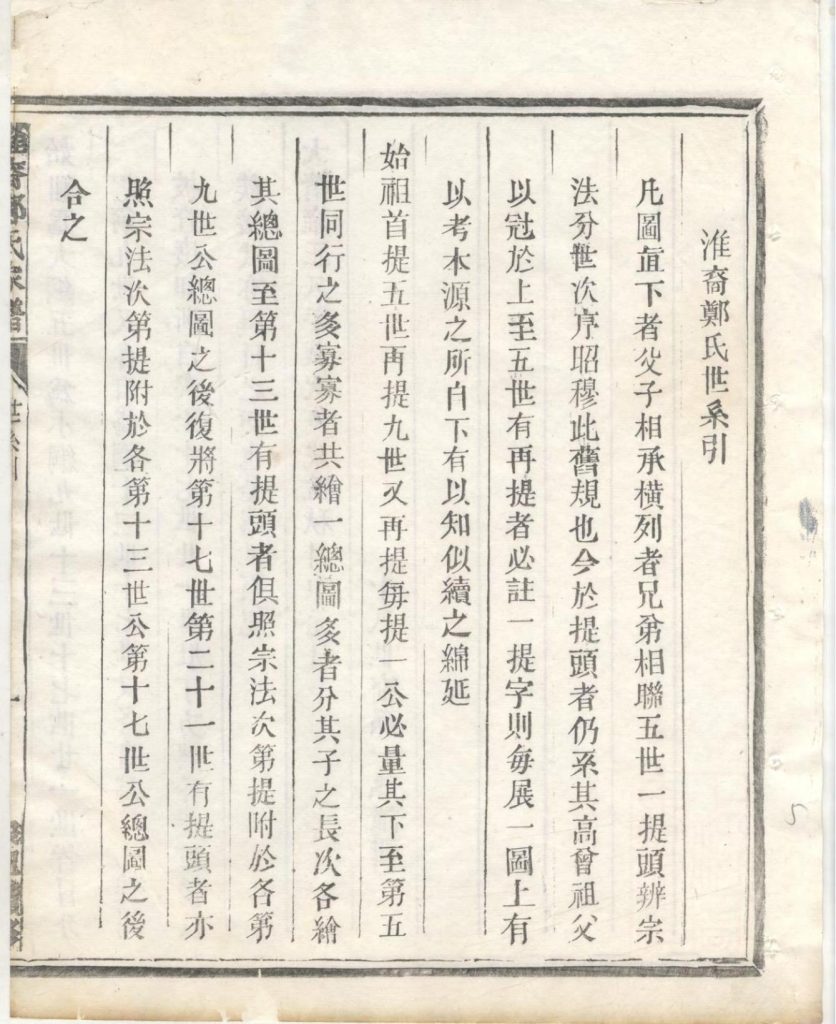 淮裔鄭氏世系引
凡圖直下者父子相承橫列者兄弟相聯五世一提頭辨宗
法分世次序昭穆此舊規也今於提頭者仍系其高曾祖父
以冠於上至五世有再提者必註一提字則每展一圖上有
以考本源之所自下有以知似續之綿延
始祖首提五世再提九世又再提每提一公必量其下至第五
世同行之多寡寡者共繪一總圖多者分其子之長次各繪
其總圖至第十三世有提頭者俱照宗法次第提附於各第
九世公總圖之後復將第十七世第二十一世有提頭者亦
照宗法次第提附於各第十三世公第十七世公總圖之後
合之
淮裔鄭氏家譜
世系引
一